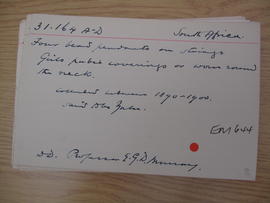 31.164 A-D South Africa
Four bead pendants on strings
Girls pubic coverings or worn round
the neck.
collected between 1890-1900.
said
EN1644
DD. Professor E.G.D. Murray.